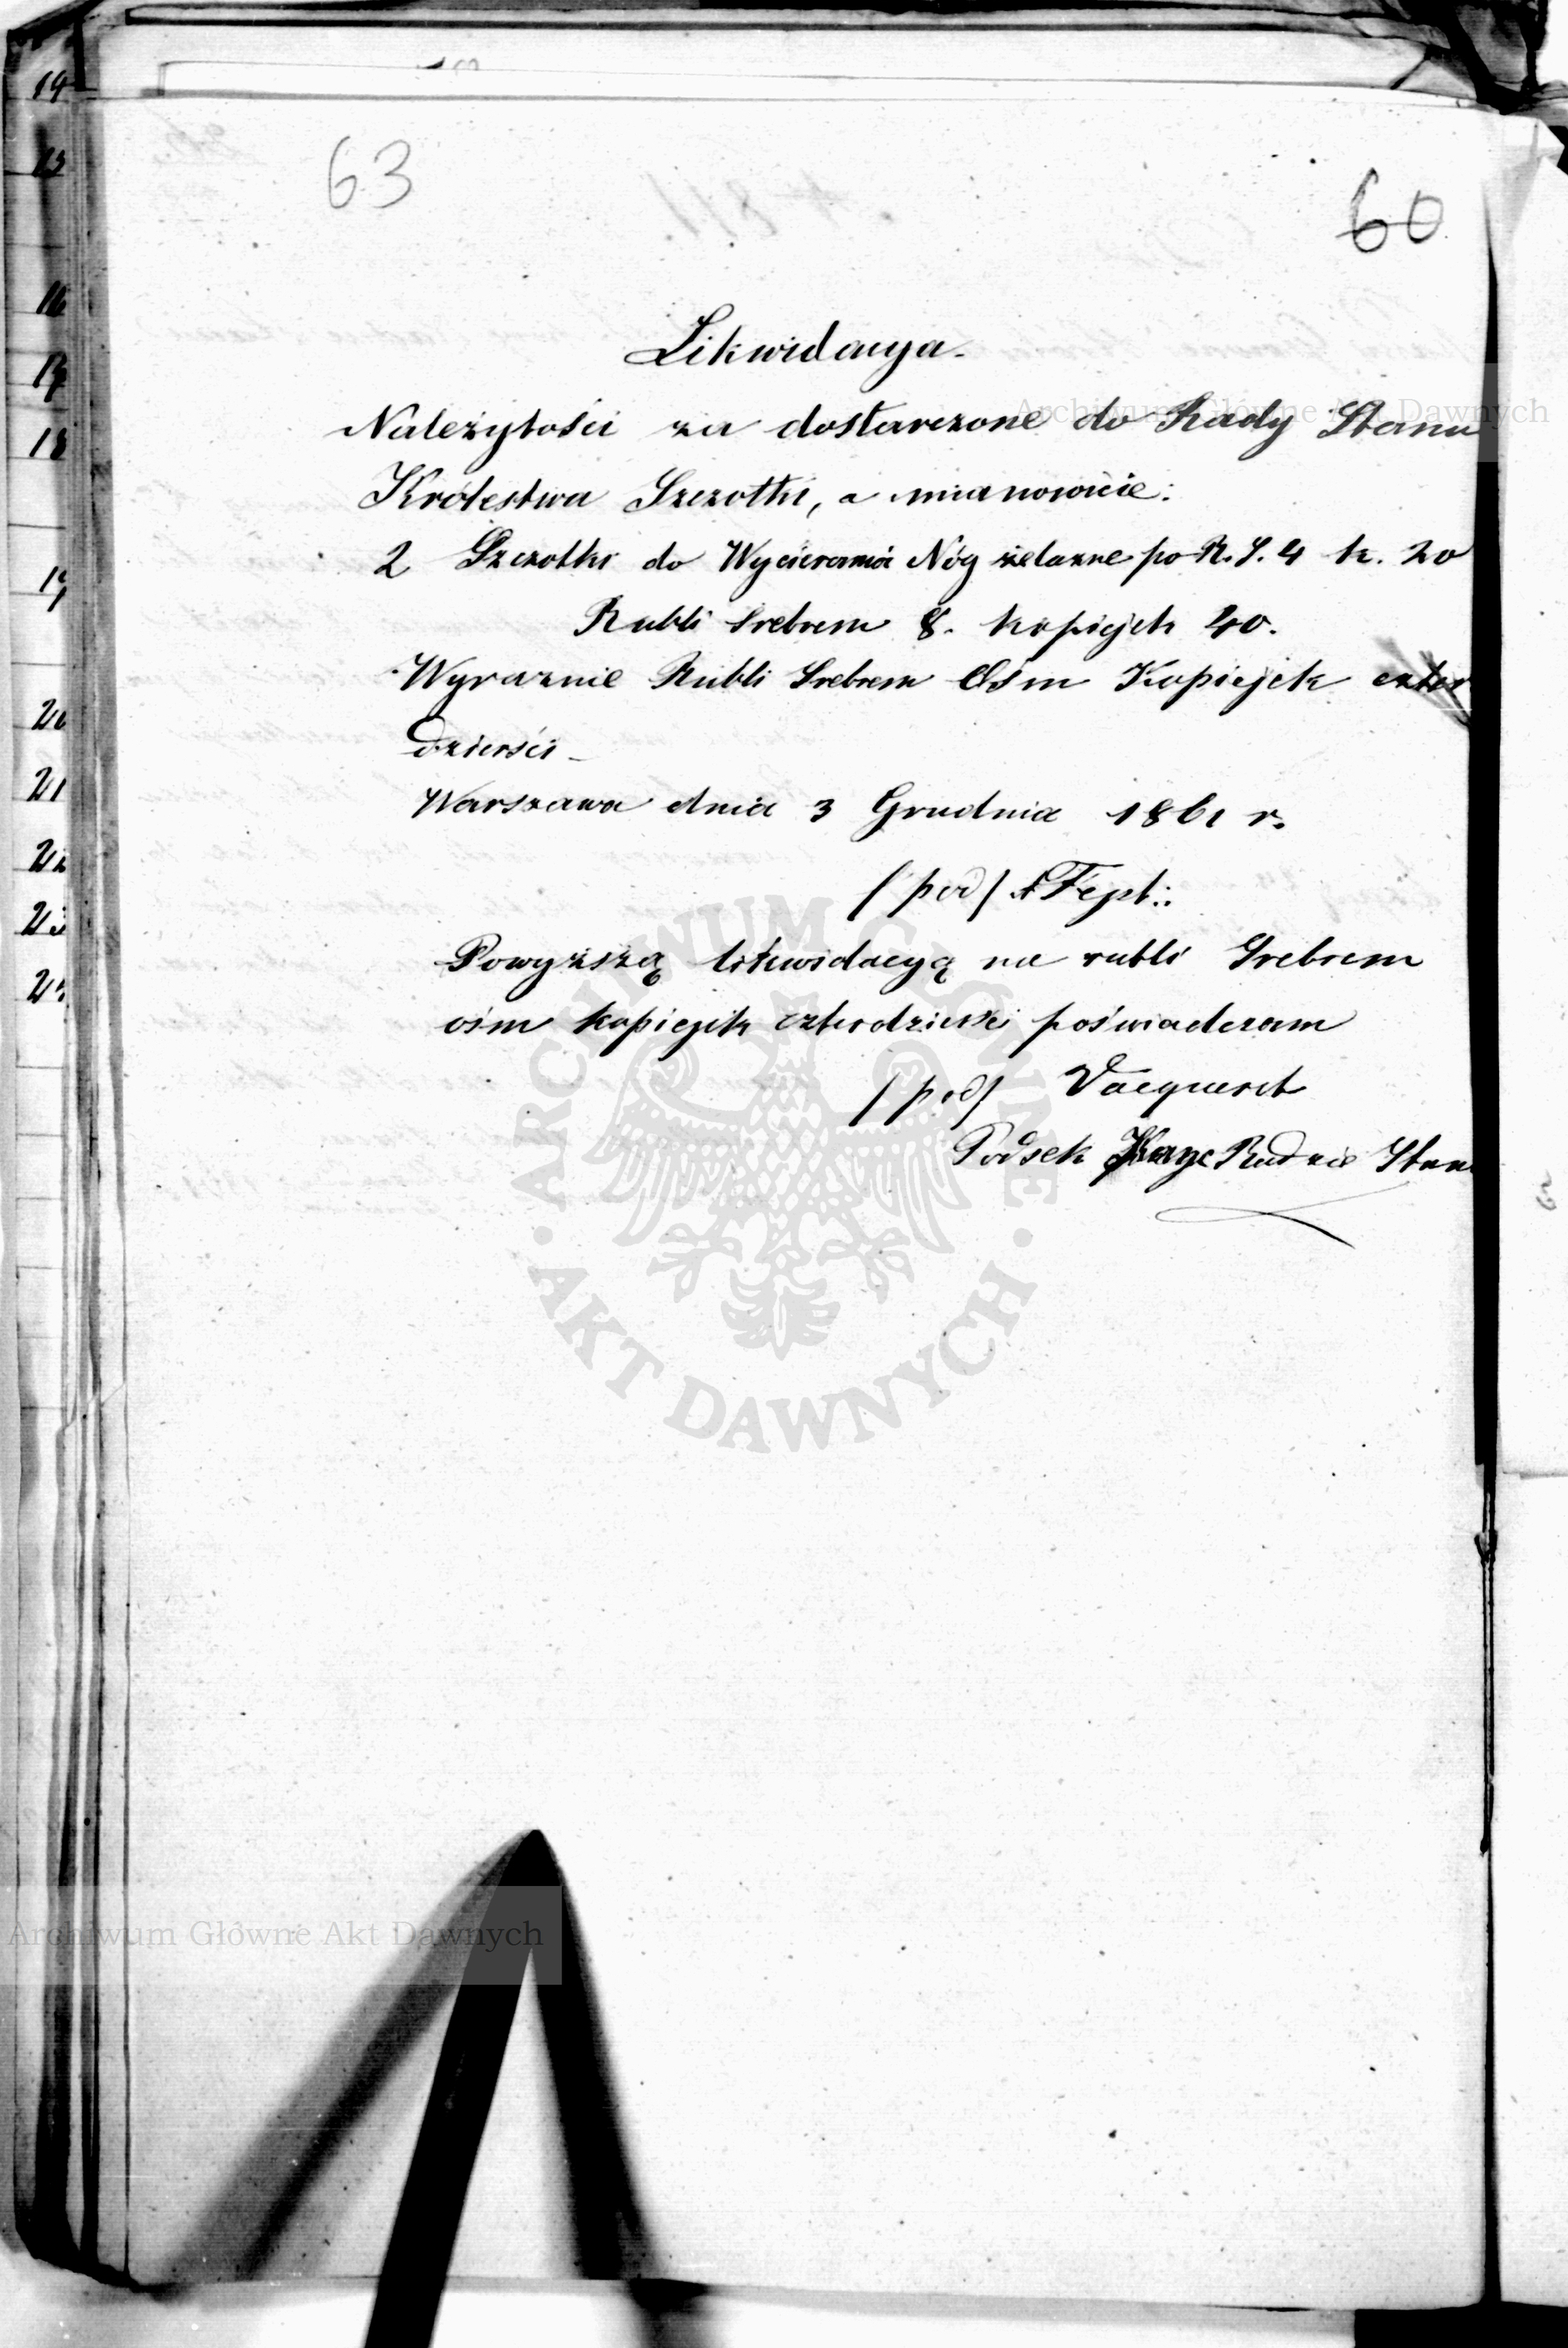 14
15
16
17
18
19
20
21
22
23
63
60
Likwidacya.
Należytości za dostarczone do Rady Stanu
Królestwa Szczotki, a mianowicie:
2 Szczotki do Wycierania Nóg żelazne po R. S. 4 k. 20
Rubli Srebrem 8. kopiejek 40.
Wyraznie Rubli Srebrem Ośm Kopiejek czter
dzieści
Warszawa dnia 3 Grudnia 1861 r.
/pod/
Powyższą likwidacyą na rubli Srebrem
ośm kopiejek czterdzieści poświadczam
/pod/ Vacqueret
Podsek Rad zie Stan
Archiwum Główne Akt Dawnych
ARCHIWUM GŁÓWNE
AKT DAWNYCH
Archiwum Główne Akt Dawnych